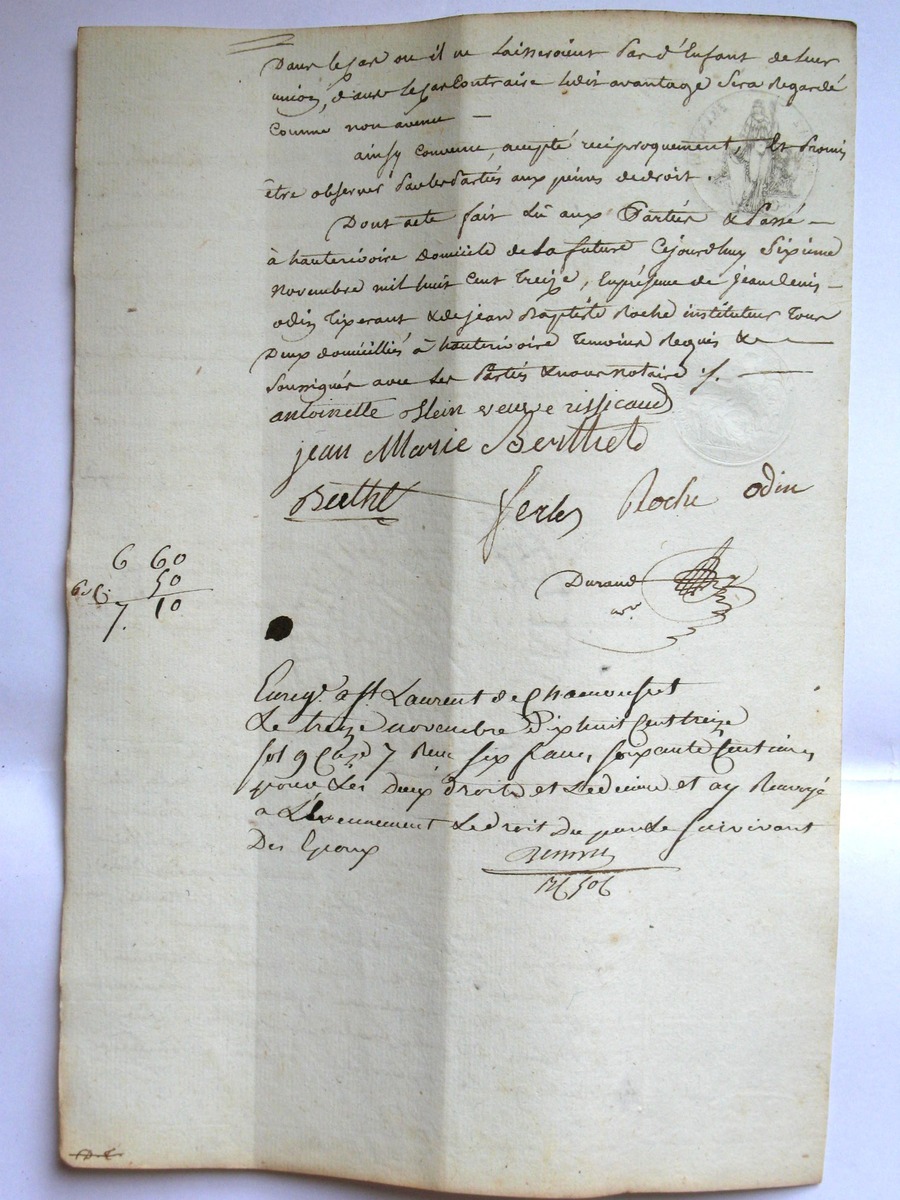 Dans le cas ou il ne laisseroient Pas d'Enfant de leur
union, dans le cas Contraire ledit avantage Sera Regardé
Comme non avenu —
ainsy convenu, accepté reciproquement, Et Promis
être observer Par les Parties aux peines de droit.
Dont acte fait Lû aux Parties & Passé —
à hauterivoire Domicile de La future Cejourdhuy Sixieme
Novembre mil huit Cent Treize, En présence de jean denis —
odin Tixerant & de jean Baptiste Roche instituteur Tous
Deux domicilliés à hauterivoire Temoins Requis & —
Soussignés avec Les Parties & nous notaire ./. —
antoinette veuve rissicaud
jean Marie Berthet
Berthet
Roche odin
Durand
nre
6 60
50
7. 10
Enregt. a St Laurent de Chamousset
Le treize novembre dixhuit Cent treize
fol 9 Case 7 Reçu six francs soixante Centimes
pour Les deux droits et Le dixme et ay Renvoyé
a L'Evennement Le droit Du par Le Survivant
Des Epoux